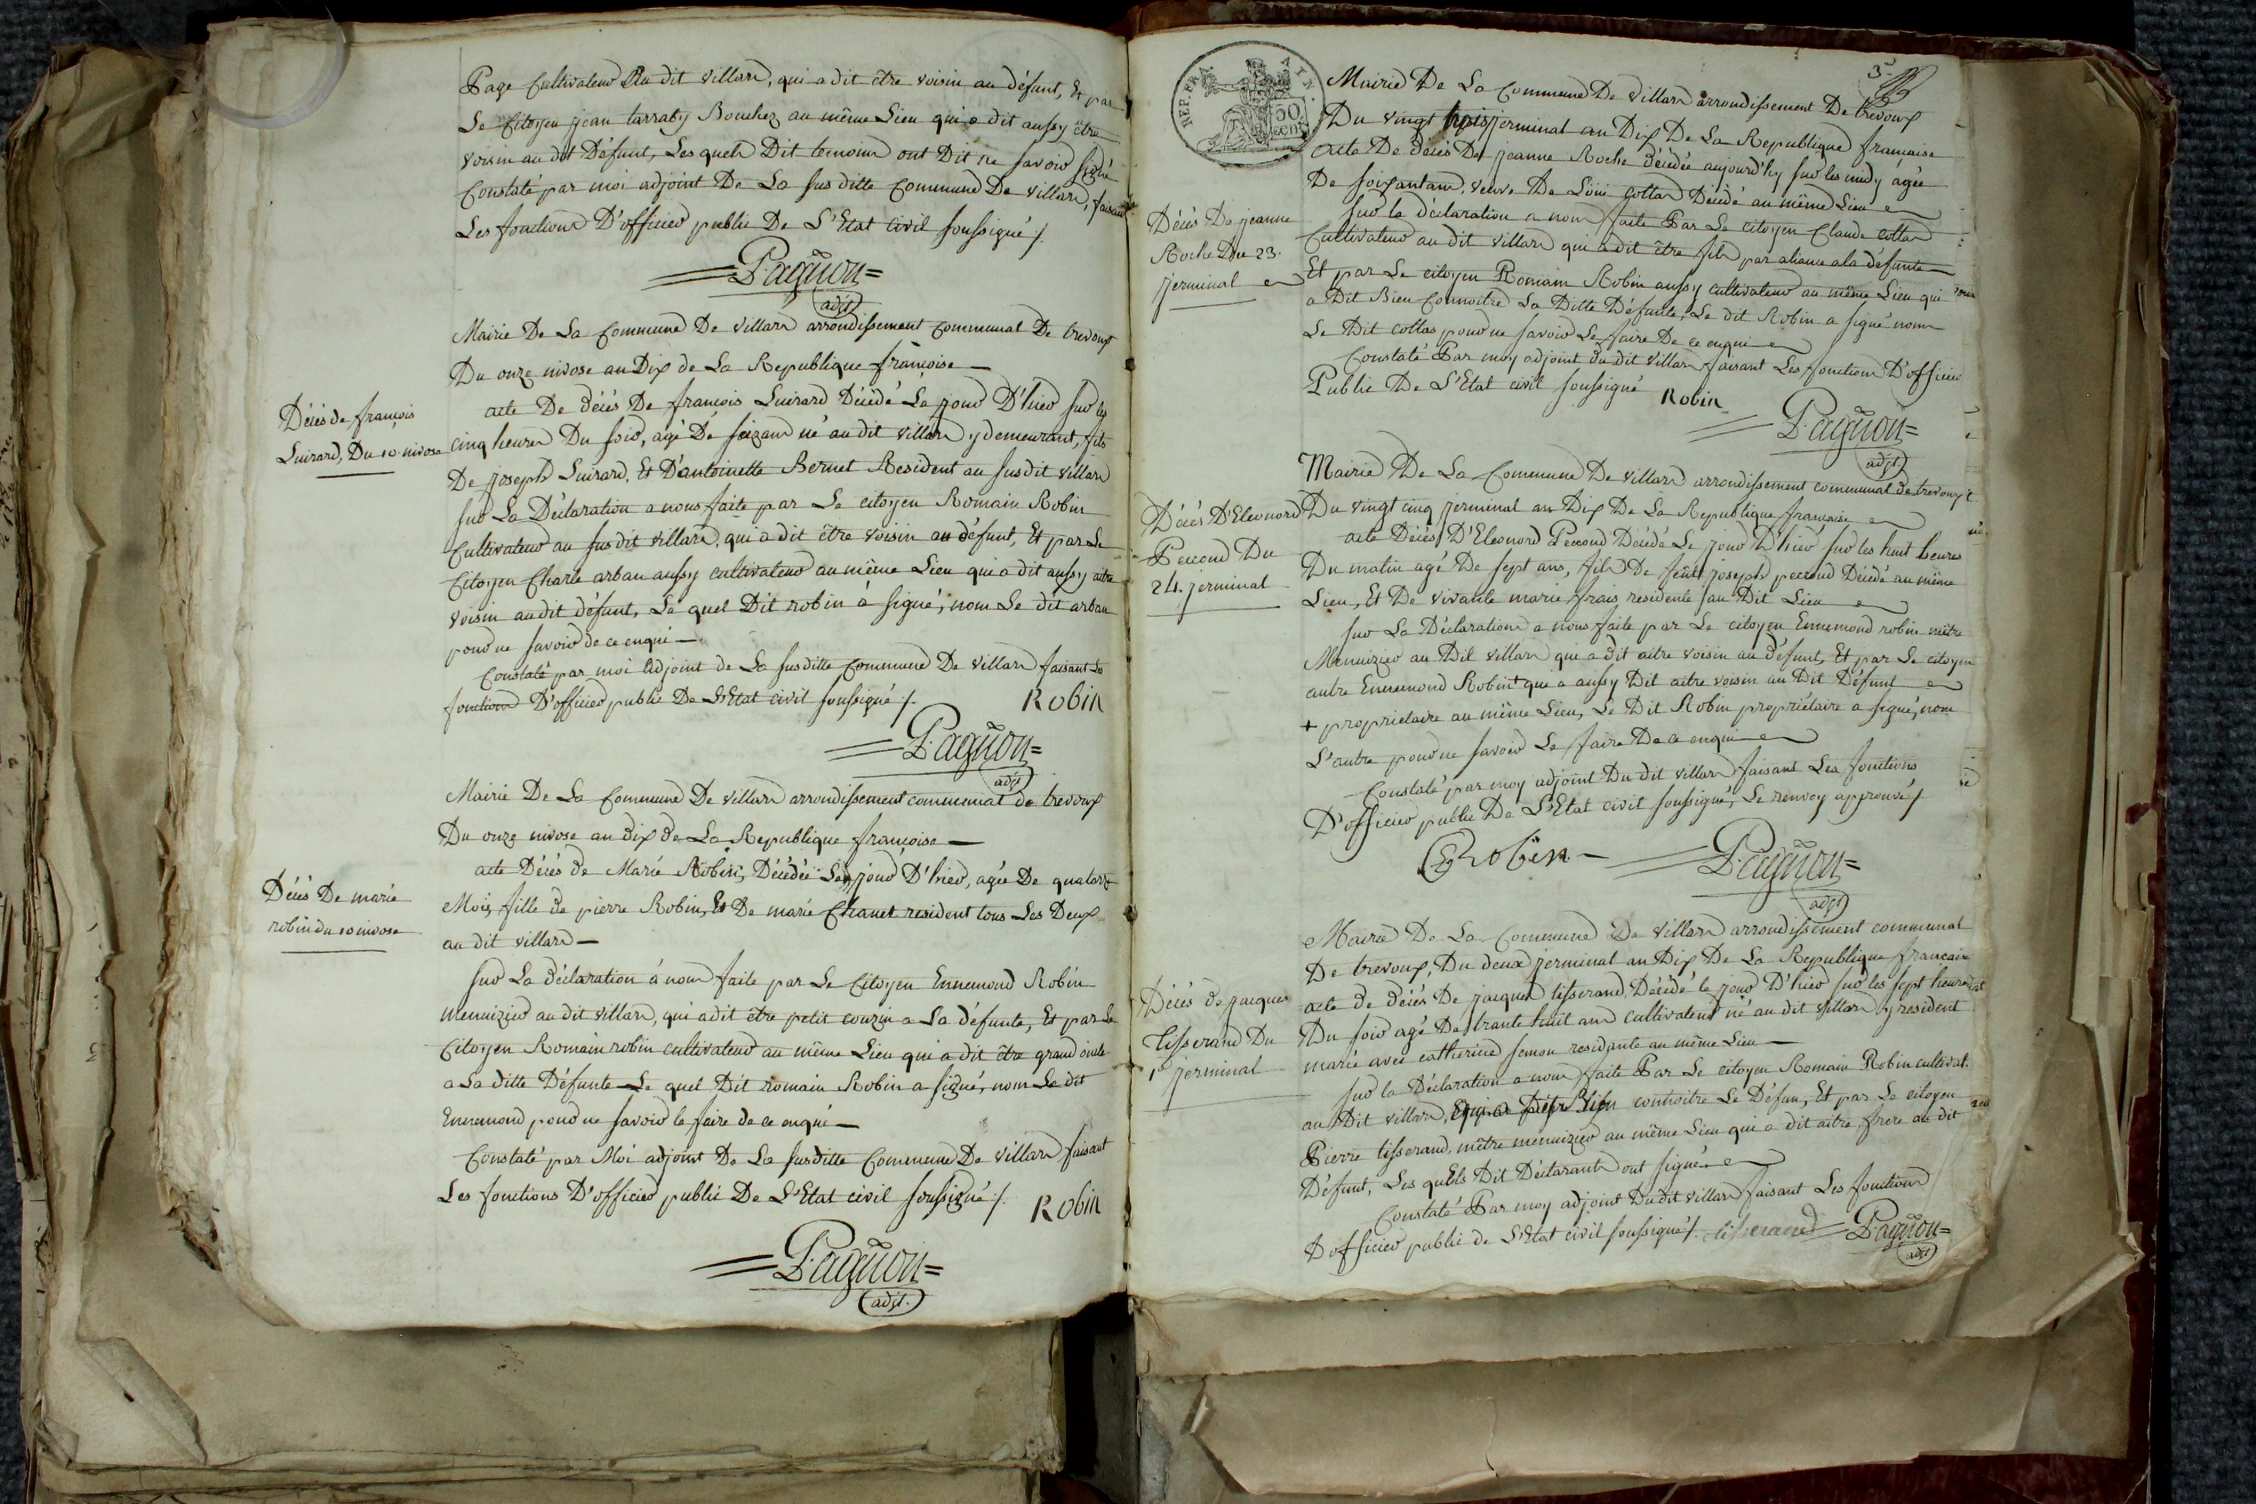 Page Cultivateur Au dit villars, qui a dit être voisin au défunt, Et par
Le Citoyen jean tarraby Bouchez au même Lieu qui a dit aussy être
voisin au dit Défunt, Les quels Dit temoins ont Dit ne savoir signé
Constaté par moi adjoint De La sus ditte Commune De villars, faisant
Les fonctions D'officier public De L'Etat civil soussigné /.
Pagnon
adjt
Mairie De La Commune De villars arrondissement communal De trevoux
Du onze nivose an Dix de La Republique françoise
Décés de françois
Luirard, Du 10 nivose
acte De décés De françois Luirard Décédé Le jour D'hier sur les
cinq heures Du soir, agé De seizans né au dit villars y demeurant, fils
De joseph Luirard, Et D'antoinette Bernet Resident au susdit villars
sur La Déclaration a nous faite par Le citoyen Romain Robin
Cultivateur au sus dit villars, qui a dit être voisin au défunt, Et par Le
Citoyen Charle arban aussy cultivateur au même Lieu qui a dit aussy aitre
voisin au dit défunt, Le quel Dit robin a signé, nom Le dit arban
pour ne savoir de ce enqui
Constaté par moi adjoint de La susditte Commune De villars faisant Les
fonctions D'officier public De L'Etat civil soussigné /.
Robin
Pagnon
adjt
Mairie De La Commune De villars arrondissement communal de trevoux
Du onze nivose an dix de La Republique françoise
Décés De marie
robin du 10 nivose
acte Décés de Marie Robin, Décédée Le jour D'hier, agée De quatorze
Mois, fille de pierre Robin, Et De marie Chanet resident tous Les Deux
au dit villars
sur La déclaration a nous faite par Le Citoyen Ennemond Robin
menuizier au dit villars, qui a dit être petit couzin a La défunte, Et par Le
Citoyen Romain robin cultivateur au même Lieu qui a dit être grand oncle
a La ditte Défunte Le quel Dit romain Robin a signé, nom Le dit
Ennemond pour ne savoir le faire de ce enqui
Constaté par Moi adjoint De La susditte Commune De villars faisant
Les fonctions D'officier public De L'Etat civil soussigné /.
Robin
Pagnon
adjt.
REP. FRA. AIN.
50
cent
3
Mairie De La Commune De villars arrondissement De trevoux
Du vingt trois jerminal an Dix De La Republique francaise
Décés De jeanne
Roche Du 23.
jerminal
acte De décés De jeanne Roche décédée aujourd'hy sur les midy agée
De soixantans, veuve De Loui cottas Décédé au même Lieu
sur la déclaration a nous faite Par Le citoyen Claude cottas
Cultivateur au dit villars qui a dit être fils par aliance a la defunte
Et par Le citoyen Romain Robin aussy cultivateur au même Lieu qui nous
a Dit Bien Connoitre La Ditte Défunte, Le dit Robin a signé nom
Le Dit cottas pour ne savoir Le faire De ce enqui
Constaté Par moy adjoint du dit villars faisant Les fonctions D'officier
Public De L'Etat civil soussigné
Robin
Pagnon
adjt
Mairie De La Commune De villars arrondissement communal de trevoux
Du vingt cinq jerminal an Dix De La Republique francaise
Décés D'Eleonord
Pecoud Du
24. jerminal
acte Décés D'Eleonord Pecoud Décédé Le jour D'hier sur les huit heures
Du matin agé De sept ans, fils De feut joseph pecoud Décédé au même
Lieu, Et De vivante marie frais residente au Dit Lieu
sur La Déclaration a nous faite par Le citoyen Ennemond robin mètre
Menuizier au Dit villars que a dit aitre voisin au défunt, Et par Le citoyen
autre Ennemond Robin + que a aussy Dit aitre voisin au Dit Défunt
+ proprietaire au même Lieu, Le Dit Robin propriétaire a signé, nom
L'autre pour ne savoir Le faire De ce enqui
Constaté par moy adjoint Du dit villars faisant Les fonctions
D'officier public De L'Etat civil soussigné, Le renvoy approuvé /.
Robin
Pagnon
adjt
Mairie De La Commune De villars arrondissement communal
De trevoux, Du deux jerminal an Dix De La Republique francaise
Décés de jacques
Tisserand Du
1er jerminal
acte de décés De jacques tisserand, Décédé le jour D'hier sur les sept heures
Du soir agé De trante huit ans cultivateur né au dit villars y resident
marié avec catherine semon residante au même Lieu
sur la Déclaration a nous faite Par Le citoyen Romain Robin cultivat.
au Dit villars, qui a Dit Bien connoitre Le Défun, Et par Le citoyen
Pierre tisserand, mêtre menuizier au même Lieu qui a dit aitre frere au dit
Défunt, Les quels Dit Déclarants ont signé
Constaté Par moy adjoint Du dit villars faisant Les fonctions
D officier public de L'Etat civil soussigné /.
tisserand
Pagnon
adjt